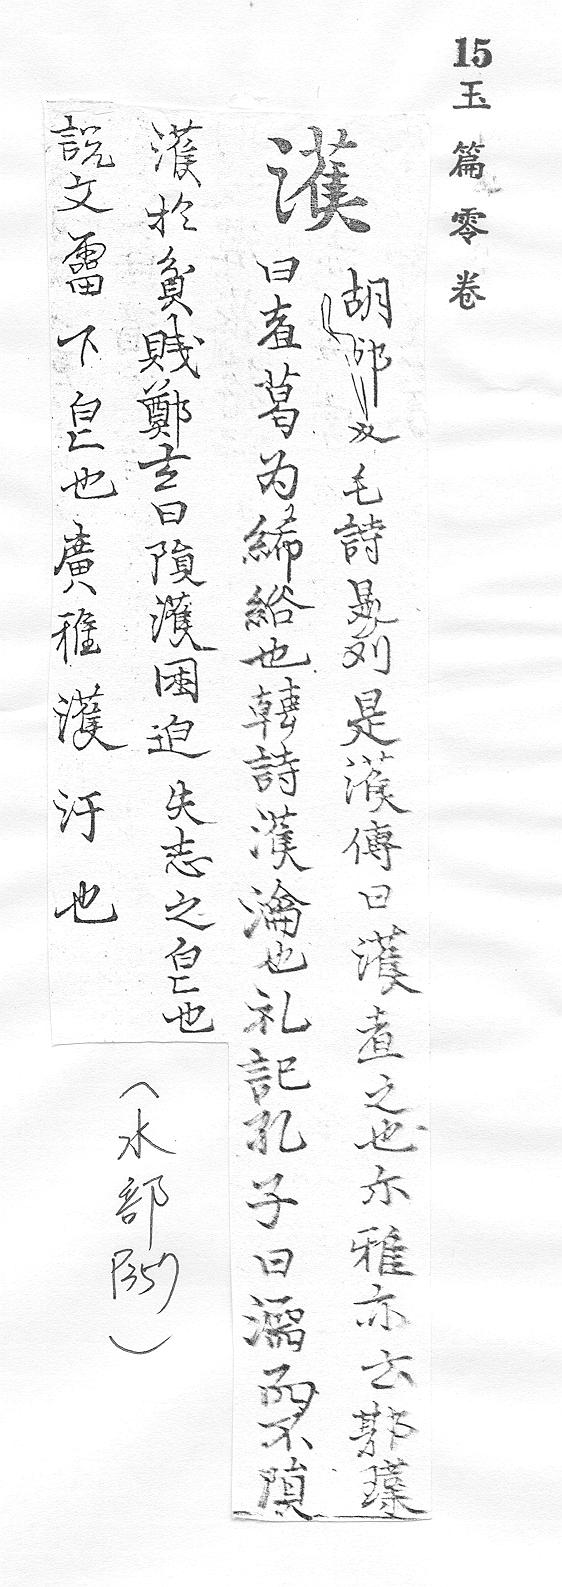 15玉篇零卷
濩
胡郭反毛詩是刈是濩傳曰濩煑之也尒雅亦云郭璞
曰煑葛为絺綌也韓詩濩瀹也礼記孔子曰濡而不隕
濩於貧賤鄭玄曰隕濩困迫失志之皃也
說文霤下皃也廣雅濩汙也
（水部P357）